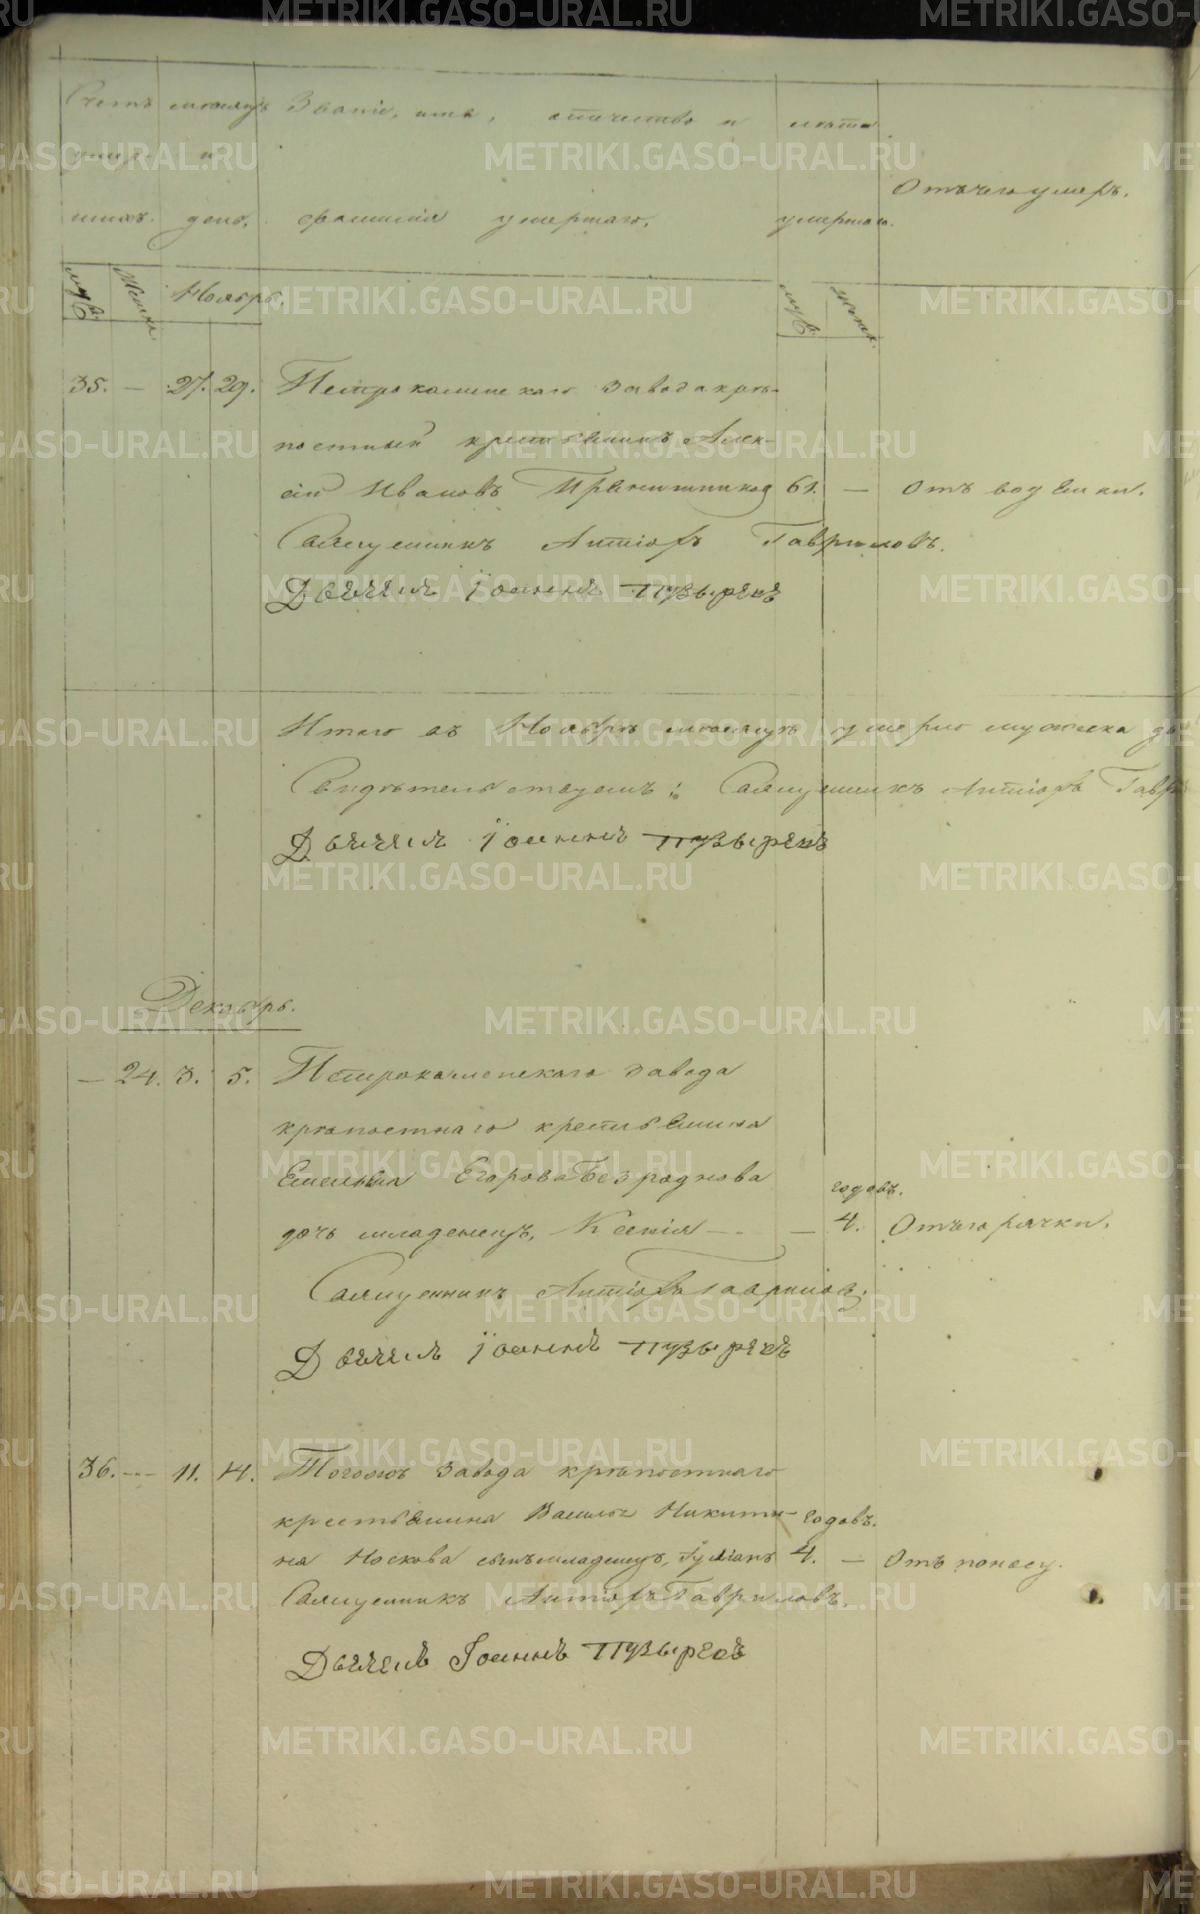 Счетъ мѣсяцъ Званіе, имя, отчество и лѣта
умер- и
Отъ чего умеръ.
шихъ. день. фамилія умершаго. умершаго.
муж. Женска Ноябрь. муж. женск.
35. — 27. 29. Петрокаменскаго завода крѣ-
постный крестьянинъ Алек-
сій Ивановъ 61. — Отъ водянки.
Священникъ Антіохъ Гавриловъ.
Дьячекъ Іоаннъ Пузыревъ
Итого въ Ноябрѣ мѣсяцѣ умерло мужеска
Свидѣтельствуемъ: Священникъ Антіохъ Гавр
Дьячекъ Іоаннъ Пузыревъ
Декабрь.
— 24. 3. 5. Петрокаменскаго завода
крѣпостнаго крестьянина
Емельяна Егорова Безроднова годовъ.
дочь младенецъ, Ксенія — — 4. Отъ горячки.
Священникъ Антіохъ Гавриловъ.
Дьячекъ Іоаннъ Пузыревъ
36. — 11. 14. Тогожъ завода крѣпостнаго
крестьянина Василья Никити- годовъ.
на Носкова сынъ младенецъ, Іуліанъ 4. — Отъ поносу.
Священникъ Антіохъ Гавриловъ.
Дьячекъ Іоаннъ Пузыревъ
METRIKI.GASO-URAL.RU